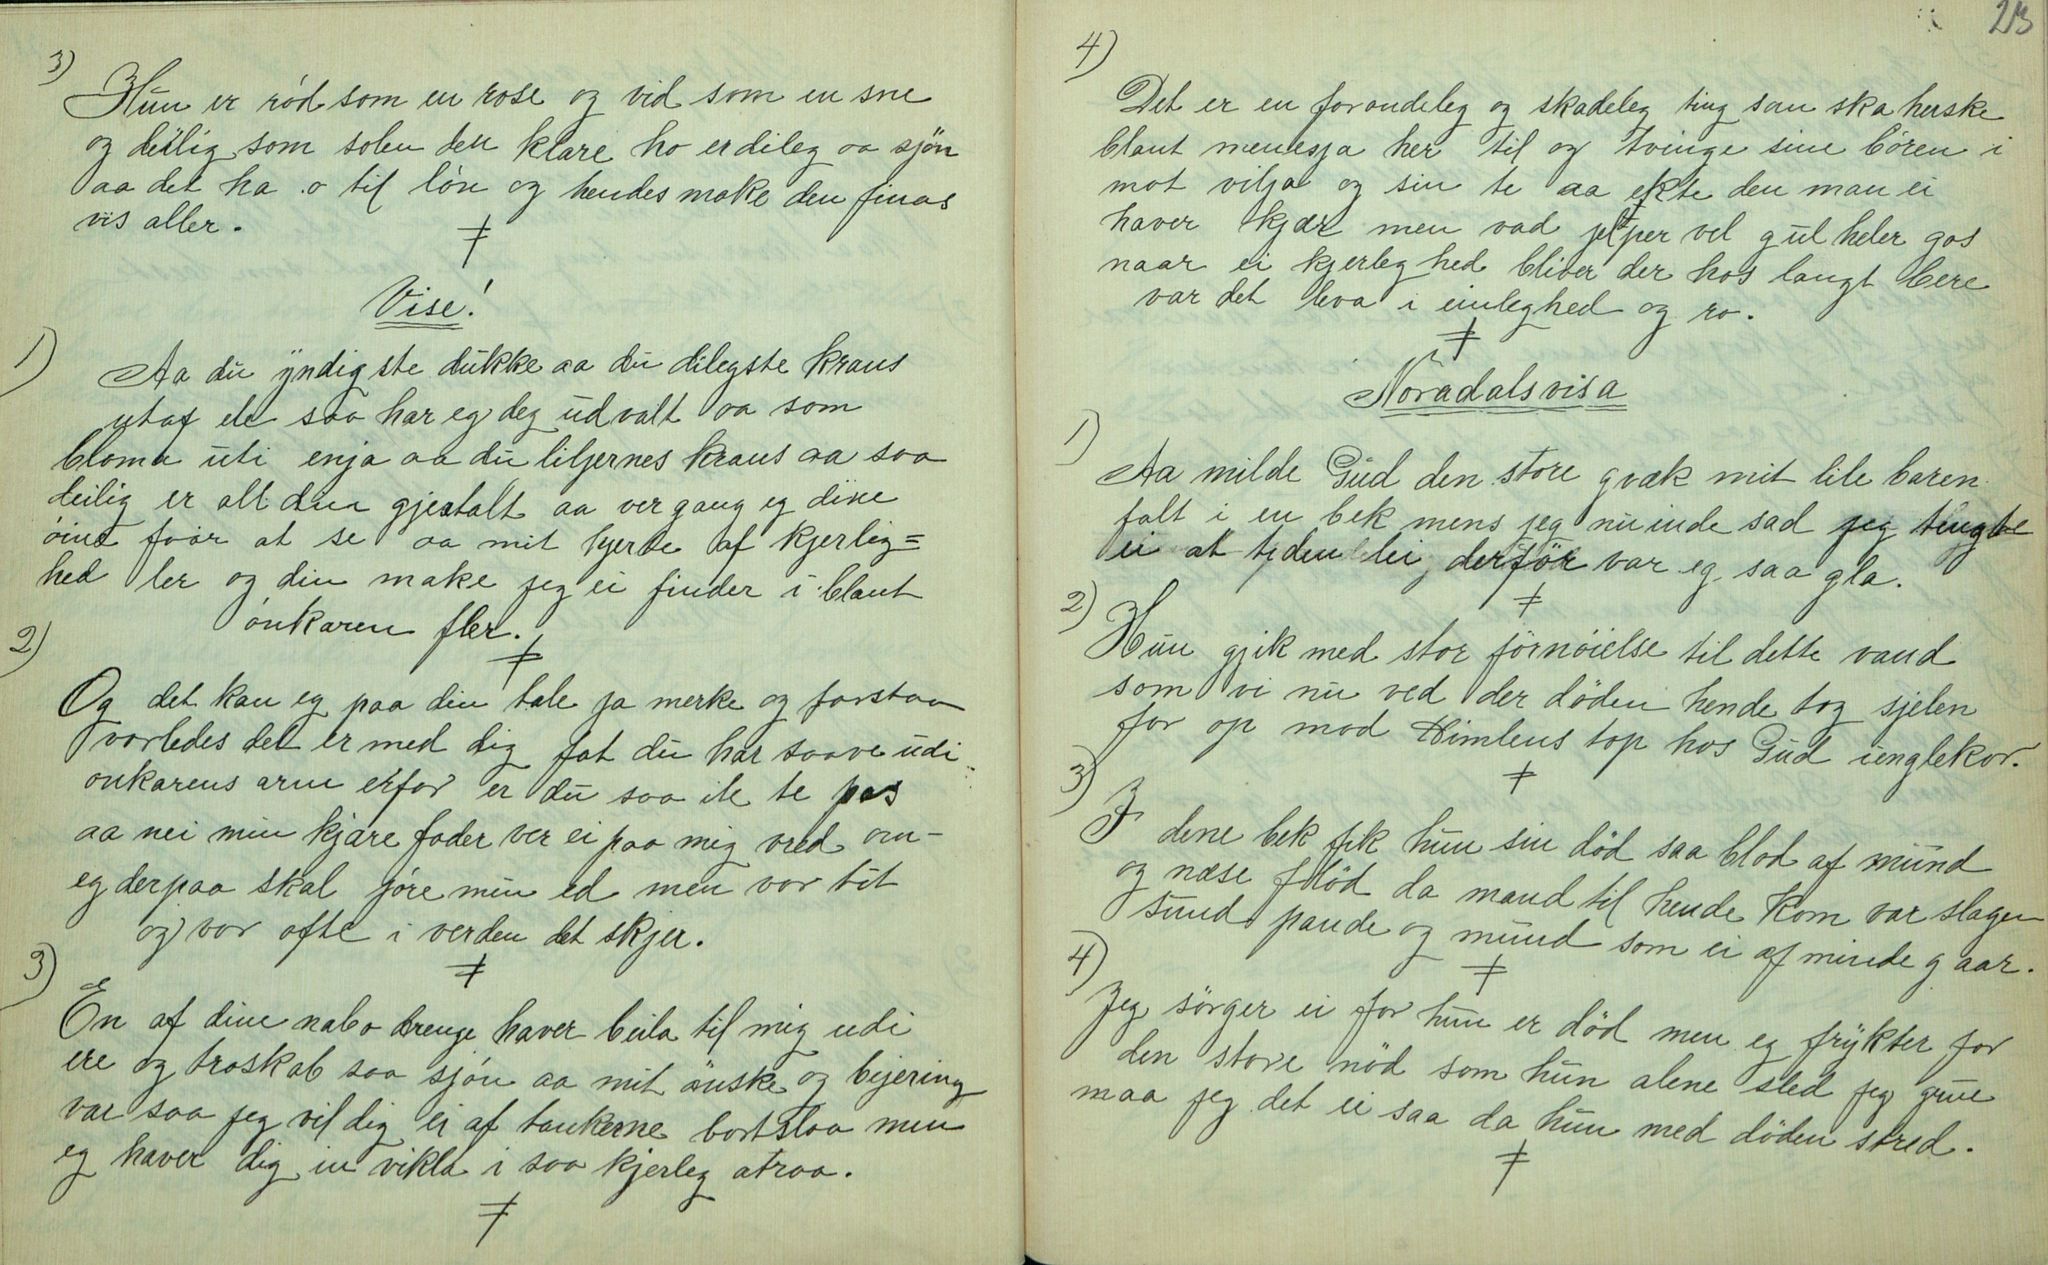 3)
Hun er rød som en rose og vid som en sne
og deilig som solen den klare ho er dileg aa sjøn
aa det ha o til løn og hendes make den finas
vis aller.
Vise!
1)
Aa du yndigste dukke aa du dilegste krans
utaf ele saa har eg deg udvalt aa som
bloma uti enja aa du liljernes krans aa saa
deilig er all din gjestalt aa ver gang eg dine
øine faar at se aa mit hjerte af kjerlig=
hed ler og din make jeg ei finder i blant
ónkaren fler.
2)
Og det kan eg paa din tale ja merke og forstaa
vorledes det er med dig fat du har saave udi
onkarens arm erfor er du saa ile te pas
aa nei min kjære fader ver ei paa mig vred om
eg derpaa skal jøre min ed men vor tit
og vor ofte i verden det skjer.
3)
En af dine nabo drenge haver beila til mig udi
ere og troskab saa sjón aa mit ønske og bejering
var saa jeg vil dig ei af tankerne bortslaa men
eg haver dig in vikla i saa kjerleg atraa.
23
4)
Det er en forandeleg og skadeleg ting sau ska herske
blant menesja her til og tvinge sine børen i
mot vilja og sin te aa ekte den man ei
haver kjær men vad jelper vel gul heler gos
naar ei kjerleghed bliver der hos langt bere
var det leva i einleghed og ro.
Nöradalsvisa
1)
Aa milde Gud den store gvæk mit lile baren
falt i en bek mens jeg nu inde sad jeg tengte
ei at tiden lei, derfør var eg saa gla.
2)
Hun gjik med stor førnøielse til dette vand
som vi nu ved der døden hende tog sjelen
for op mod Himlens top hos Gud i englekor.
3)
I dene bek fik hun sin død saa blod af mund
og næse flød da mand til hende kom var slagen
sund pande og mund som ei af minde gaar.
4)
Jeg sörger ei for hun er död men eg frykter for
den store nöd som hun alene sled jeg grue
maa jeg det ei saa da hun med döden stred.